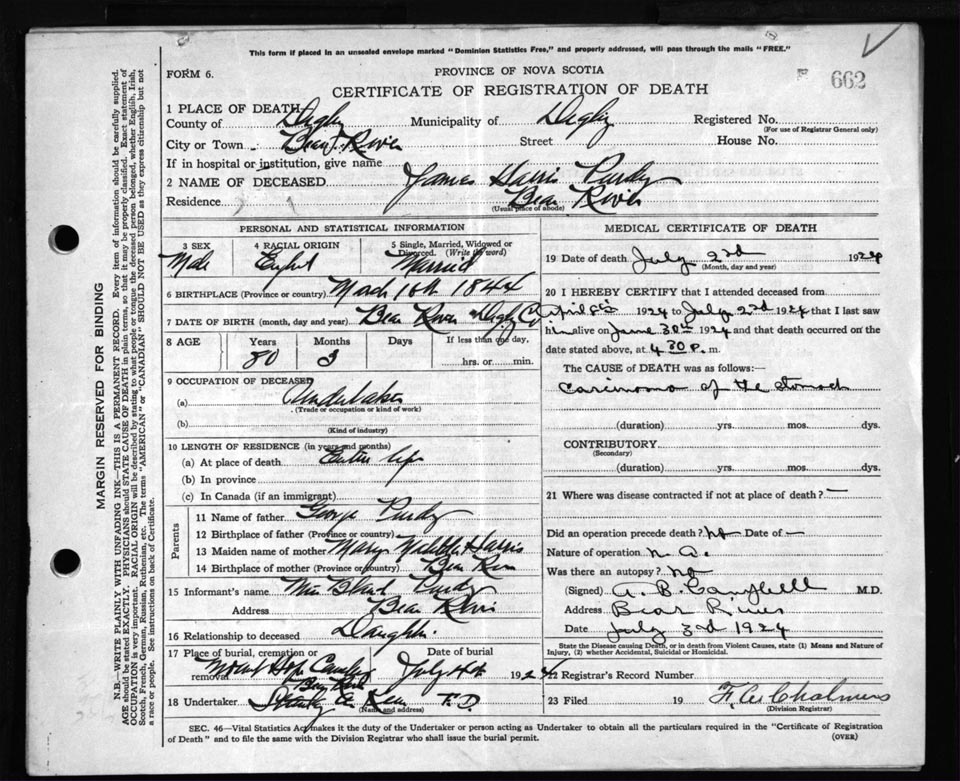 This form if placed in an unsealed envelope marked "Dominion Statistics Free," and properly addressed, will pass through the mails "FREE."
FORM 6.
PROVINCE OF NOVA SCOTIA
662
CERTIFICATE OF REGISTRATION OF DEATH
1 PLACE OF DEATH
County of Digby Municipality of Digby Registered No.
(For use of Registrar General only)
City or Town Bear River Street House No.
If in hospital or institution, give name
2 NAME OF DECEASED James Harris Purdy
Residence Bear River
(Usual place of abode)
PERSONAL AND STATISTICAL INFORMATION
3 SEX 4 RACIAL ORIGIN 5 Single, Married, Widowed or Divorced. (Write the word)
Male Married
6 BIRTHPLACE (Province or country) March 16th 1844
7 DATE OF BIRTH (month, day and year) Bear River Digby Co.
8 AGE Years Months Days If less than one day,
80 3 hrs. or min.
9 OCCUPATION OF DECEASED
(a) Undertaker
(Trade or occupation or kind of work)
(b)
(Kind of industry)
10 LENGTH OF RESIDENCE (in years and months)
(a) At place of death Entire life
(b) In province
(c) In Canada (if an immigrant)
Parents
11 Name of father George Purdy
12 Birthplace of father (Province or country)
13 Maiden name of mother Mary Harris
14 Birthplace of mother (Province or country) Bear River
15 Informant's name Purdy
Address Bear River
16 Relationship to deceased Daughter
17 Place of burial, cremation or removal Date of burial
Mount Hope Cemetery July 4th 1924
Bear River
18 Undertaker F.D.
(Name and address)
MEDICAL CERTIFICATE OF DEATH
19 Date of death July 2nd 1924
(Month, day and year)
20 I HEREBY CERTIFY that I attended deceased from
April 1924 to July 2nd 1924 that I last saw
him alive on June 30th 1924 and that death occurred on the
date stated above, at 4 30 p. m.
The CAUSE of DEATH was as follows:—
Carcinoma of the stomach
(duration) yrs. mos. dys.
CONTRIBUTORY
(Secondary)
(duration) yrs. mos. dys.
21 Where was disease contracted if not at place of death? —
Did an operation precede death? No Date of —
Nature of operation n. a.
Was there an autopsy? no
(Signed) A. B. Campbell M.D.
Address Bear River
Date July 3rd 1924
State the Disease causing Death, or in death from Violent Causes, state (1) Means and Nature of Injury, (2) whether Accidental, Suicidal or Homicidal.
22 Registrar's Record Number
23 Filed 19 Chalmers
(Division Registrar)
SEC. 46—Vital Statistics Act makes it the duty of the Undertaker or person acting as Undertaker to obtain all the particulars required in the "Certificate of Registration
of Death" and to file the same with the Division Registrar who shall issue the burial permit. (OVER)
MARGIN RESERVED FOR BINDING
N.B.—WRITE PLAINLY WITH UNFADING INK—THIS IS A PERMANENT RECORD. Every item of information should be carefully supplied.
AGE should be stated EXACTLY. PHYSICIANS should STATE CAUSE OF DEATH in plain terms, so that it may be properly classified. Exact statement of
OCCUPATION is very important. RACIAL ORIGIN will be described by stating to what people or tongue the deceased person belonged, whether English, Irish,
Scotch, French, German, Russian, Ruthenian, etc. The terms "AMERICAN" or "CANADIAN" SHOULD NOT BE USED as they express citizenship but not
a race or people. See instructions on back of Certificate.